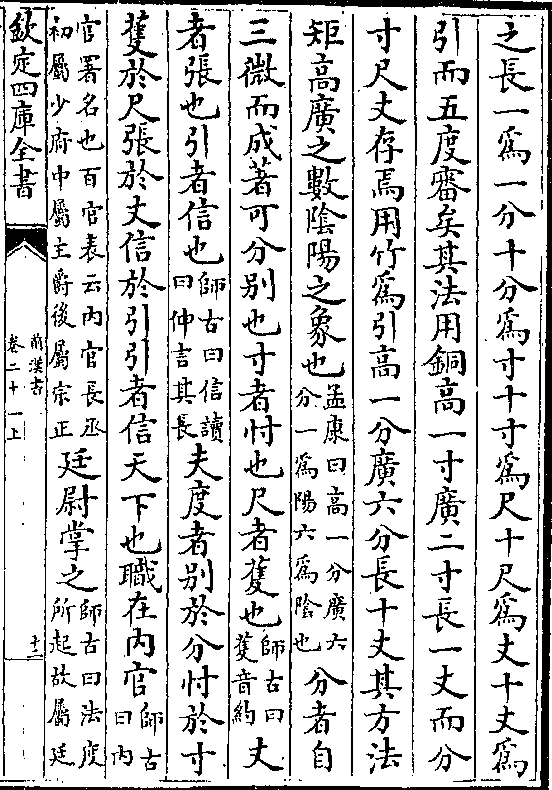 之長一為一分十分為寸十寸為尺十尺為丈十丈為
引而五度審矣其法用銅高一寸廣二寸長一丈而分
寸尺丈存焉用竹為引高一分廣六分長十丈其方法
矩高廣之數陰陽之象也孟康曰高一分廣六分一為陽六為陰也分者自
三微而成著可分别也寸者忖也尺者蒦也師古曰蒦音約丈
者張也引者信也師古曰信讀曰伸言其長夫度者别於分忖於寸
蒦於尺張於丈信於引引者信天下也職在内官師古曰内
官署名也百官表云内官長丞初屬少府中屬主爵後屬宗正廷尉掌之師古曰法度所起故屬廷
欽定四庫全書
前漢書
卷二十一上
十二